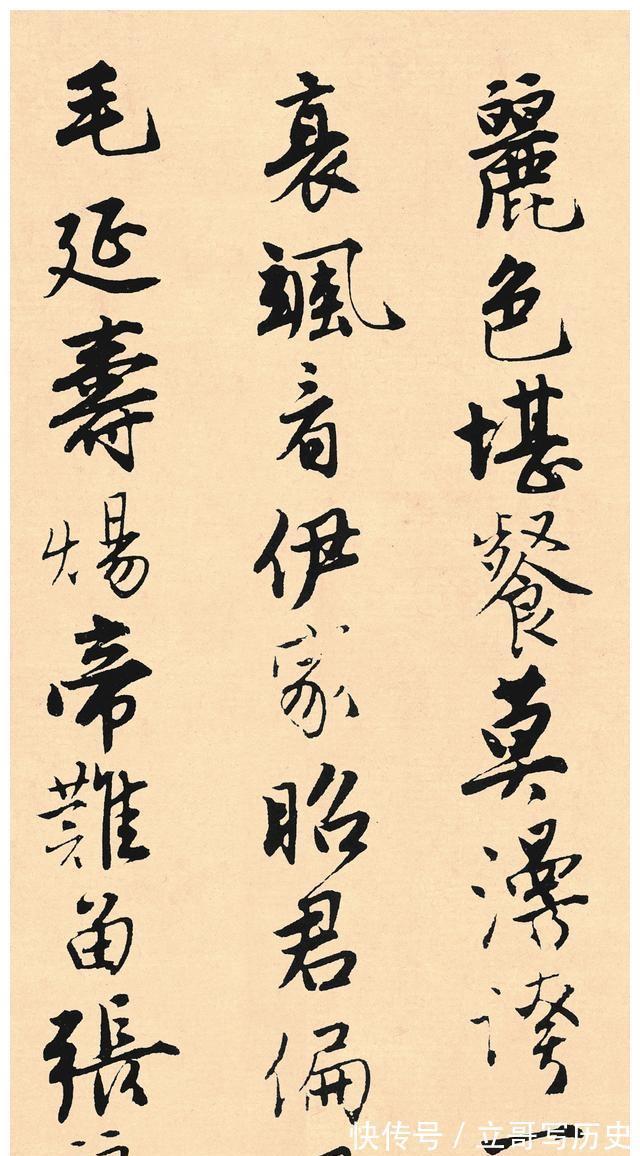 麗色堪餐莫漫誇
衰颯看伊家昭君偏
毛延壽煬帝難留張
快传号 / 立哥写历史